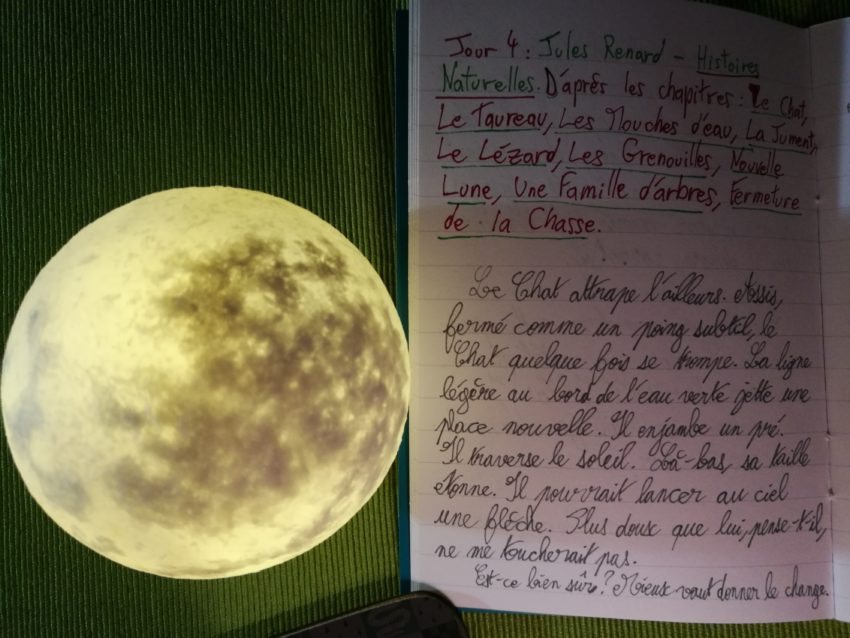 Jour 4 : Jules Renard - Histoires
Naturelles. D'après les chapitres : Le Chat,
Le Taureau, Les Mouches d'eau, La Jument,
Le Lézard, Les Grenouilles, Nouvelle
Lune, Une Famille d'arbres, Fermeture
de la Chasse.
Le Chat attrape l'ailleurs. Assis,
fermé comme un poing subtil, le
Chat quelque fois se trompe. La ligne
légère au bord de l'eau verte jette une
place nouvelle. Il enjambe un pré.
Il traverse le soleil. Là-bas, sa taille
étonne. Il pourrait lancer au ciel
une flèche. Plus doux que lui, pense-t-il,
ne me toucherait pas.
Est-ce bien sûr ? Mieux vaut donner le change.